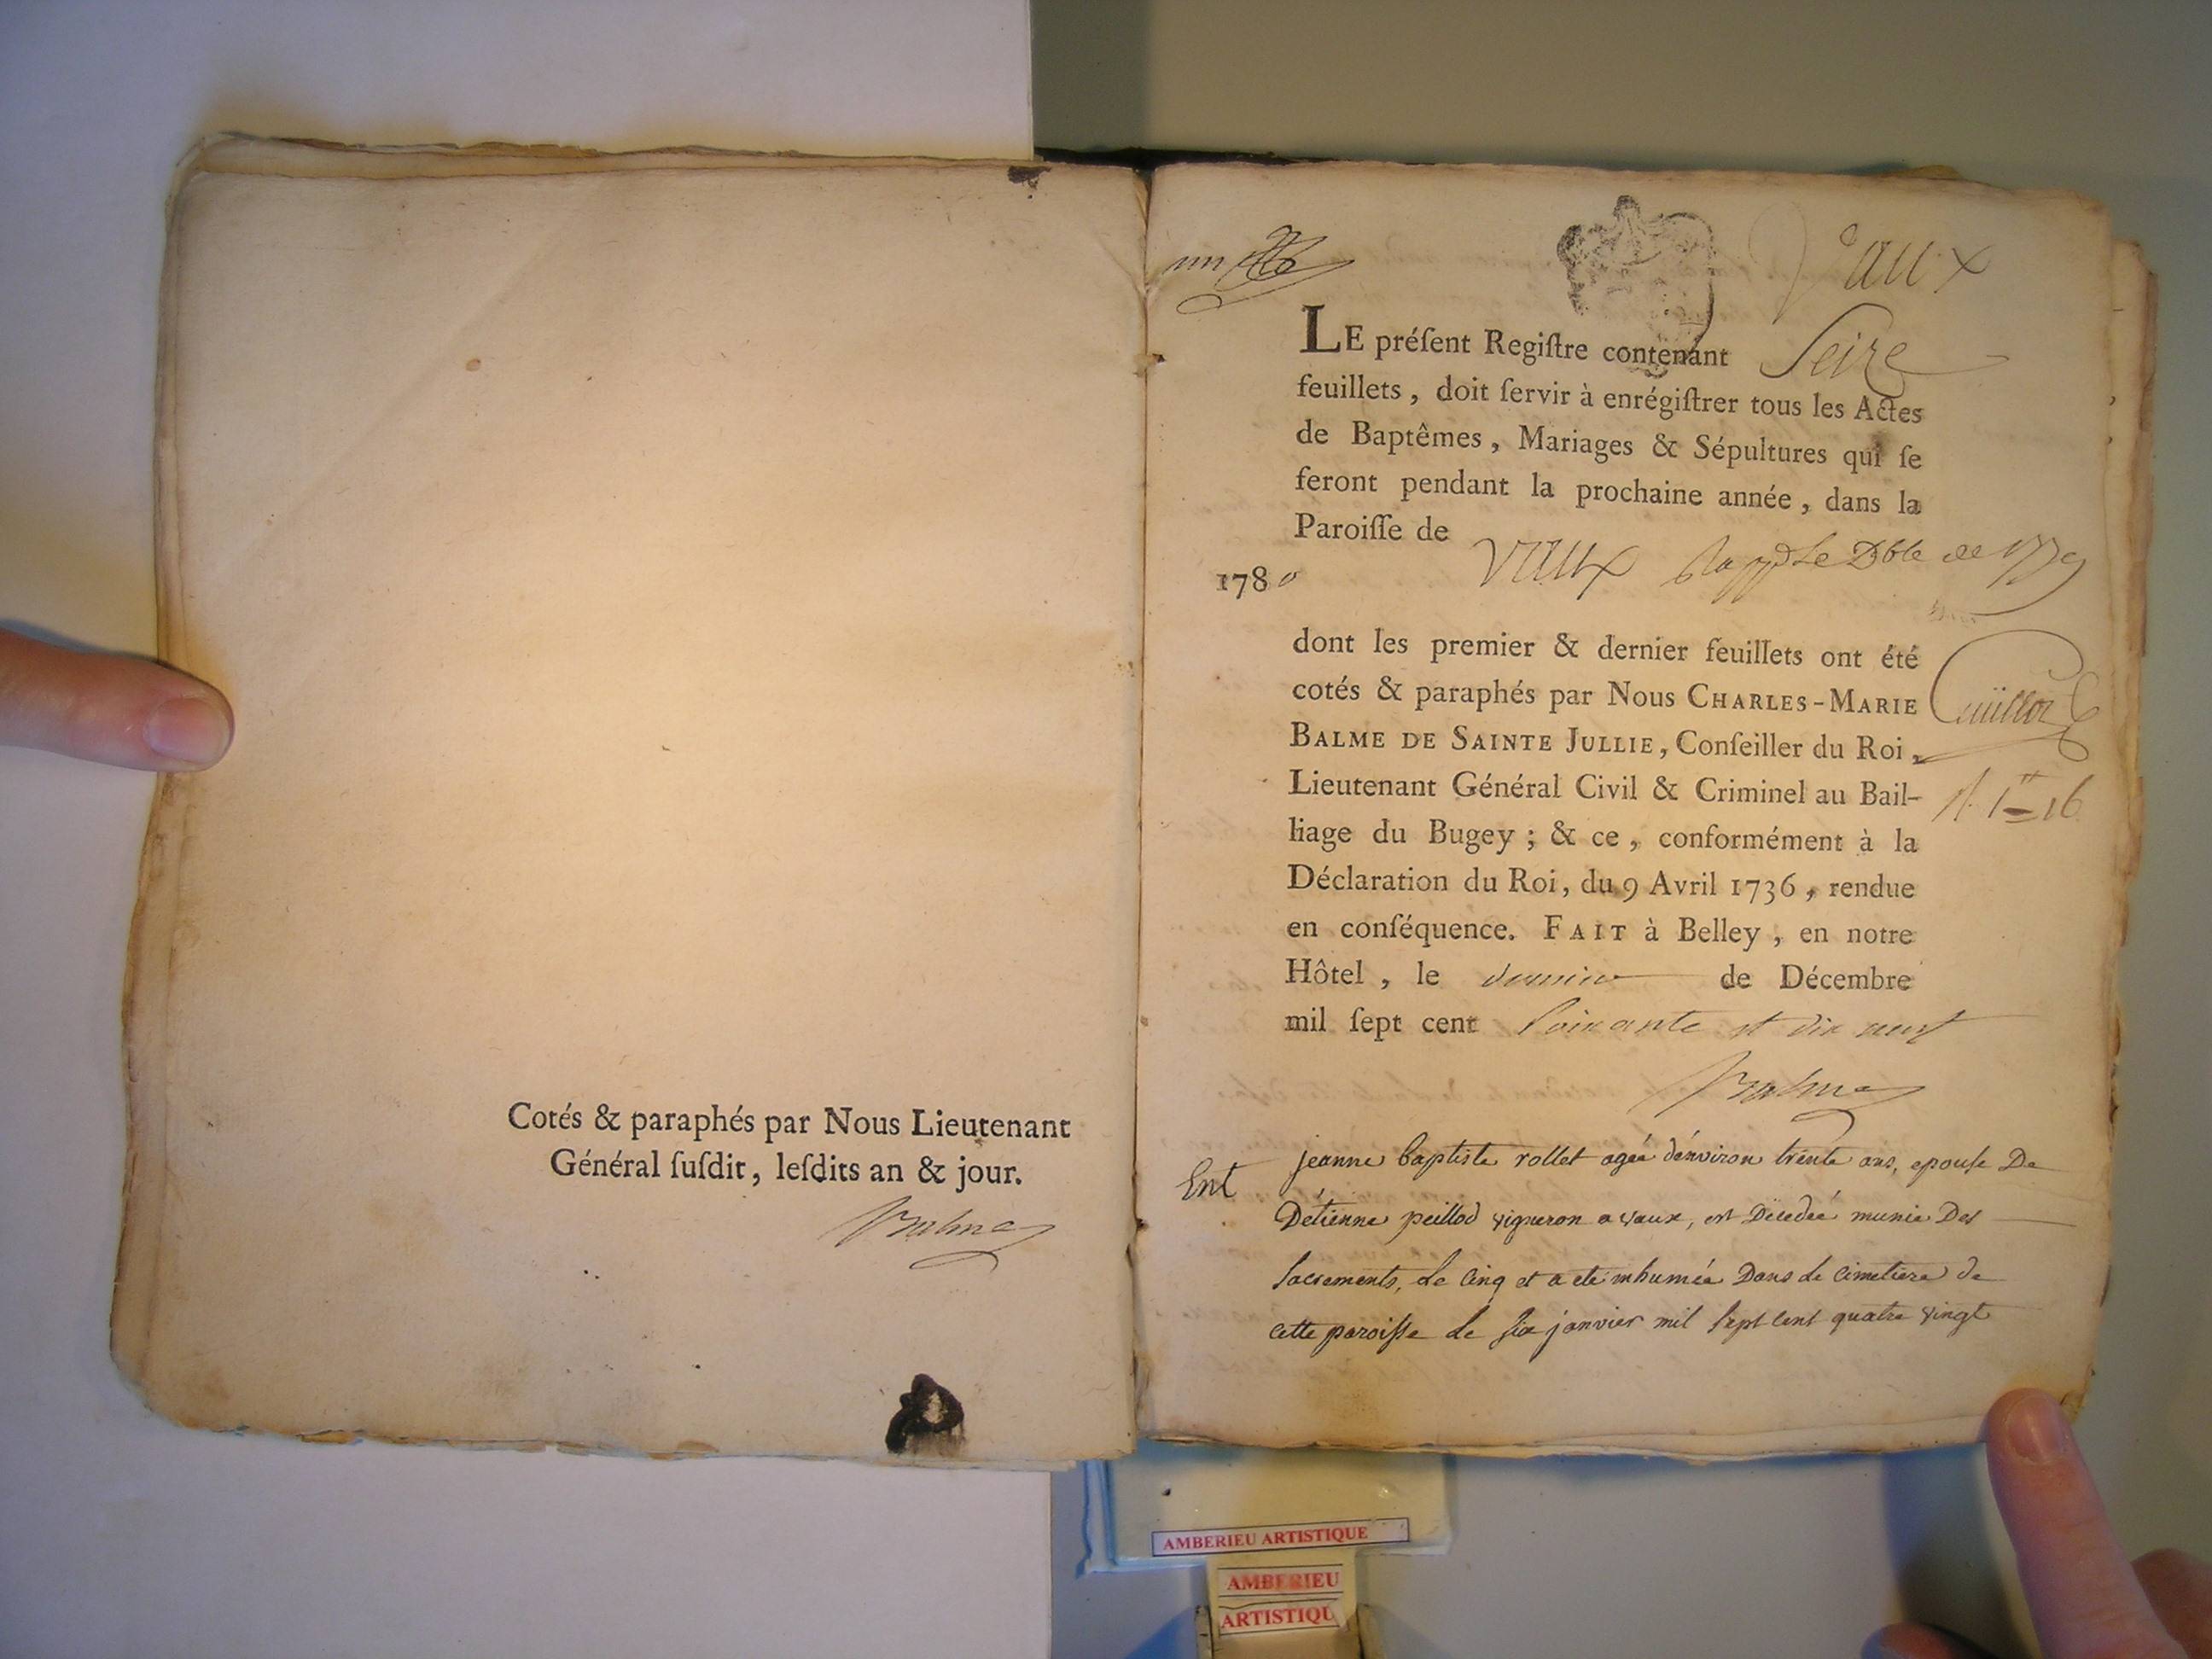 Cotés & paraphés par Nous Lieutenant
Général ſuſdit, leſdits an & jour.
Balme
un
Vaux
LE préſent Regiſtre contenant Seize
feuillets, doit ſervir à enrégiſtrer tous les Actes
de Baptêmes, Mariages & Sépultures qui ſe
feront pendant la prochaine année, dans la
Paroiſſe de
Vaux
1780
dont les premier & dernier feuillets ont été
cotés & paraphés par Nous CHARLES-MARIE
BALME DE SAINTE JULLIE, Conſeiller du Roi,
Lieutenant Général Civil & Criminel au Bail-
liage du Bugey ; & ce, conformément à la
Déclaration du Roi, du 9 Avril 1736, rendue
en conſéquence. FAIT à Belley, en notre
Hôtel, le dernier de Décembre
mil ſept cent soixante et dix neuf
Balme
Ent
jeanne baptiste rollet agée d'environ trente ans, epouse De
D'étienne peillod vigneron a vaux, est Décedée munie Des
sacrements, Le cinq et a eté inhumée Dans Le cimetiere de
cette paroisse Le six janvier mil sept cent quatre vingt
AMBERIEU ARTISTIQUE
AMBERIEU
ARTISTIQU